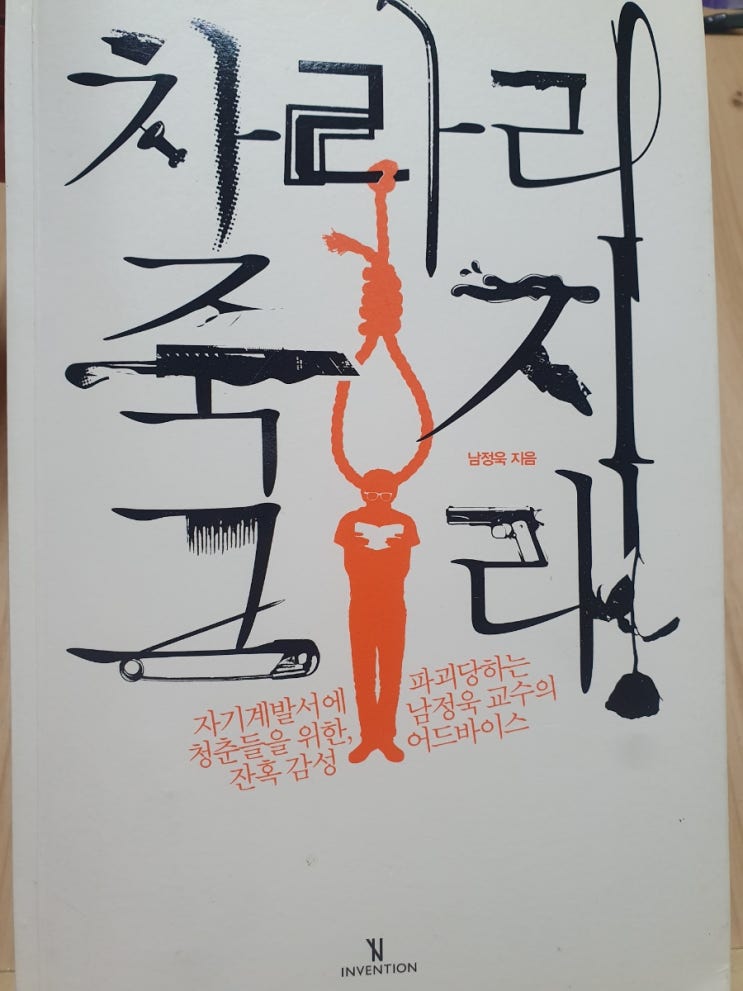 차라리
죽지
그래!
남정욱 지음
자기계발서에 파괴당하는
청춘들을 위한, 남정욱 교수의
잔혹 감성 어드바이스
INVENTION